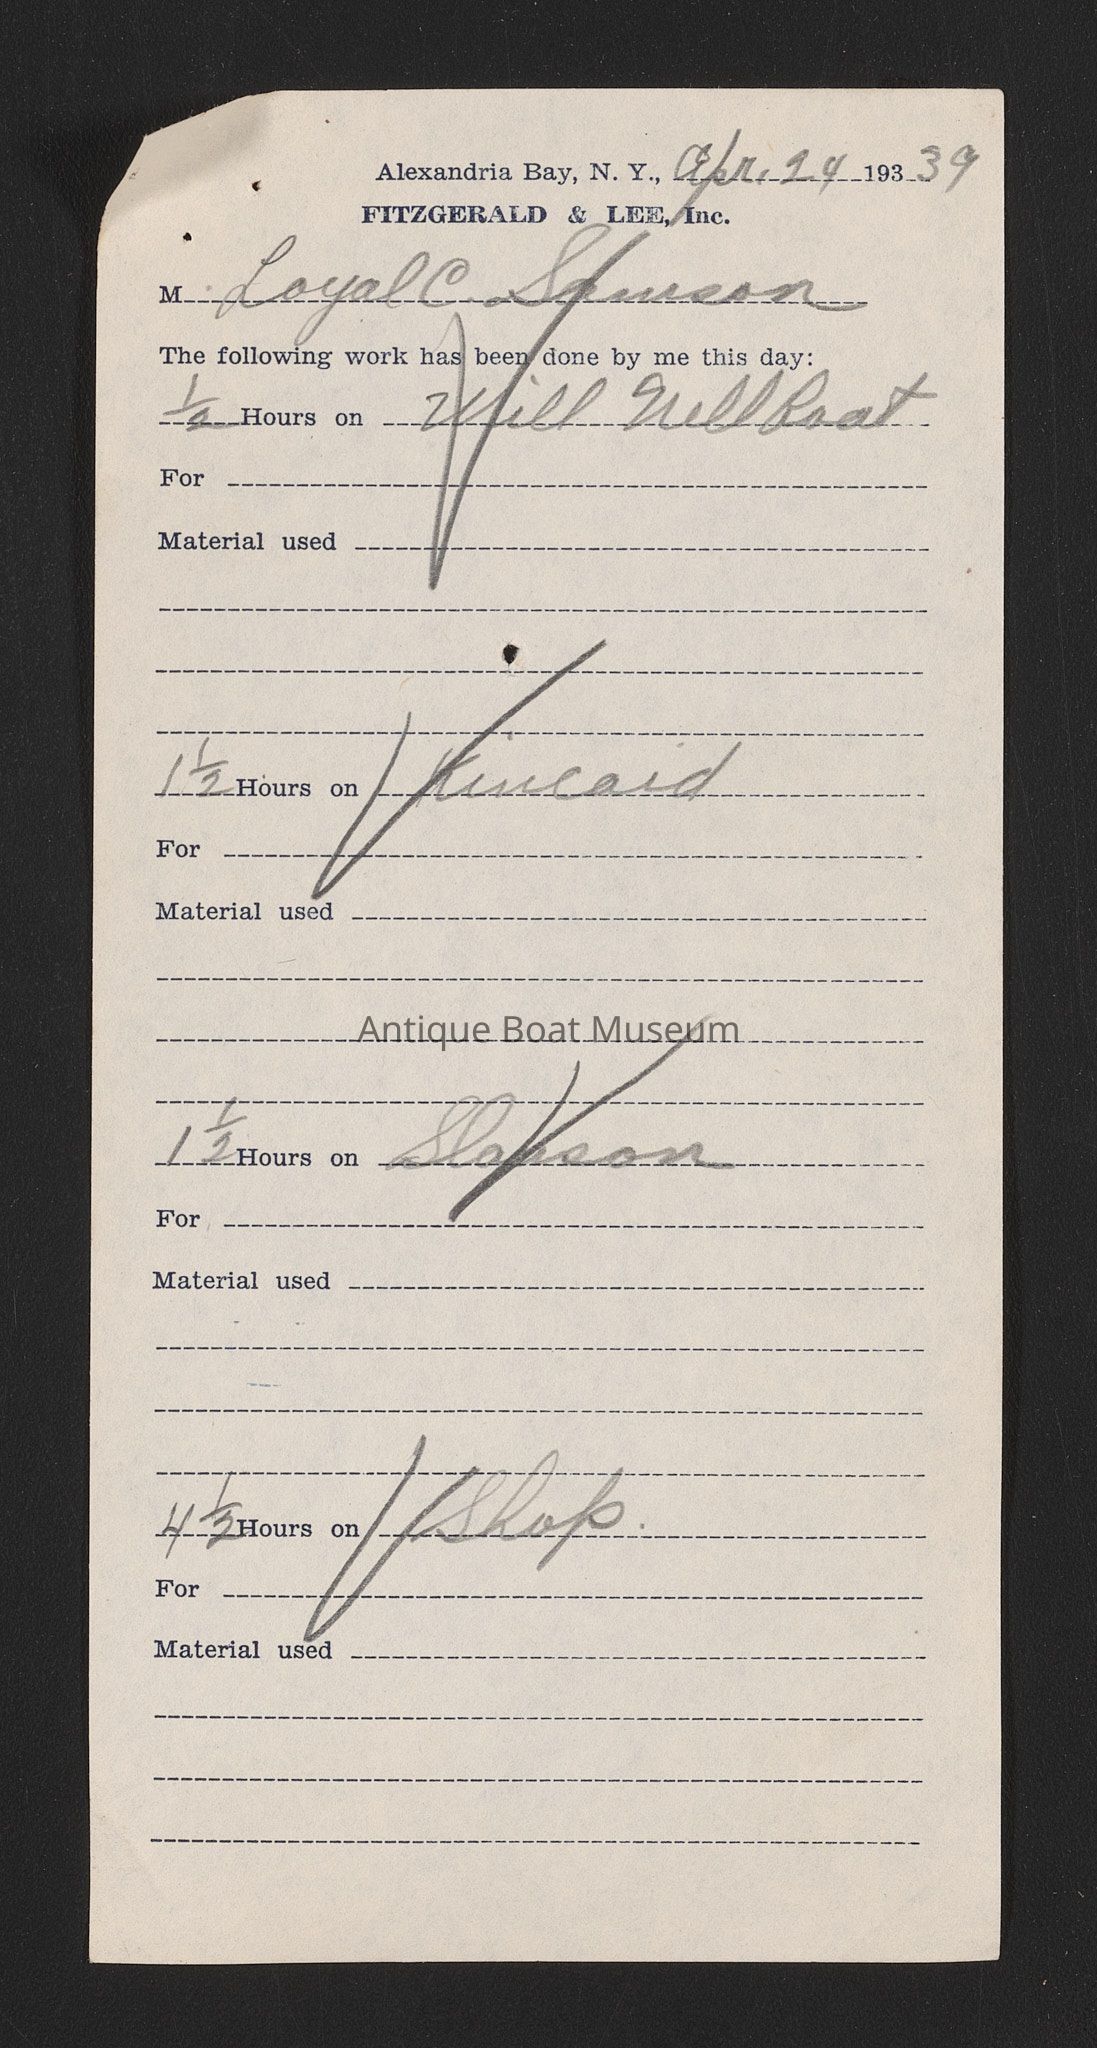 Alexandria Bay, N. Y., Apr. 24 193 39
FITZGERALD & LEE, Inc.
M Loyal C. Samson
The following work has been done by me this day:
1/2 Hours on Will Nell Boat
For
Material used
1 1/2 Hours on Kincaid
For
Material used
Antique Boat Museum
1 1/2 Hours on
For
Material used
4 1/2 Hours on Shop.
For
Material used